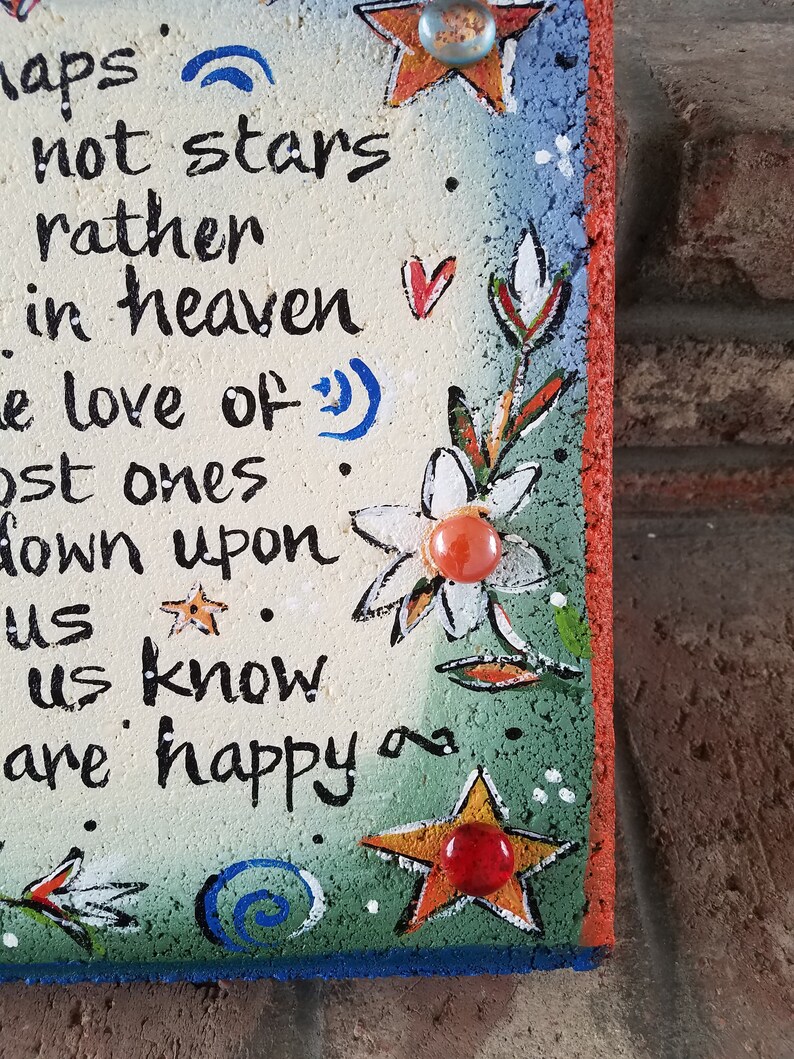 haps
not stars
rather
in heaven
e love of
ost ones
down upon
us
us know
are happy ~